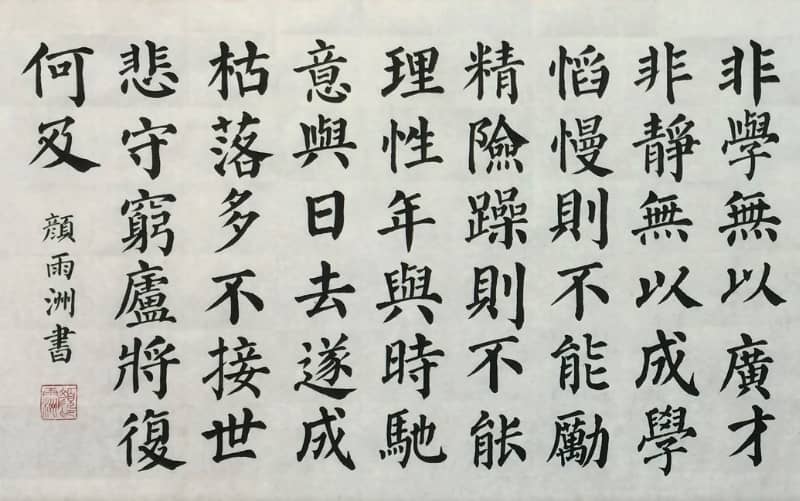 非學無以廣才
非靜無以成學
慆慢則不能勵
精險躁則不能
理性年與時馳
意與日去遂成
枯落多不接世
悲守窮廬將復
何及
顏雨洲書